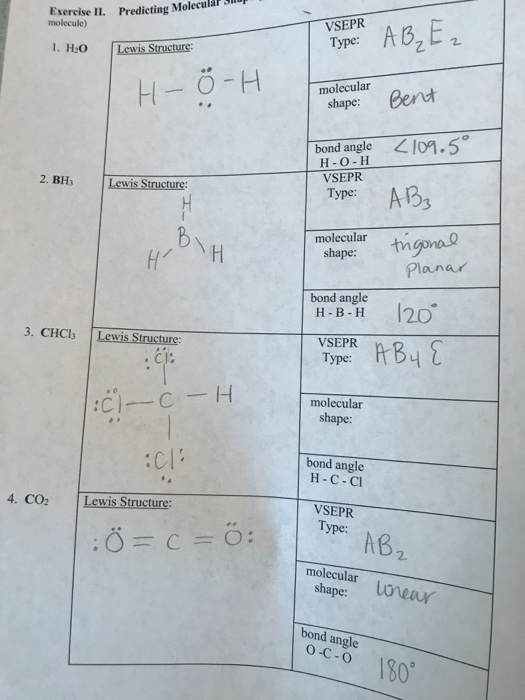 Exercise II. Predicting Molecular
molecule)
1. H₂O
Lewis Structure:
H - Ö - H
VSEPR
Type: AB₂E₂
molecular
shape: Bent
bond angle <109.5°
H - O - H
2. BH₃
Lewis Structure:
H
B
H H
VSEPR
Type: AB₃
molecular trigonal
shape: Planar
bond angle
H - B - H 120°
3. CHCl₃
Lewis Structure:
:Cl:
:Cl - C - H
:Cl:
VSEPR
Type: AB₄ E
molecular
shape:
bond angle
H - C - Cl
4. CO₂
Lewis Structure:
:Ö = C = Ö:
VSEPR
Type: AB₂
molecular
shape: linear
bond angle
O - C - O 180°